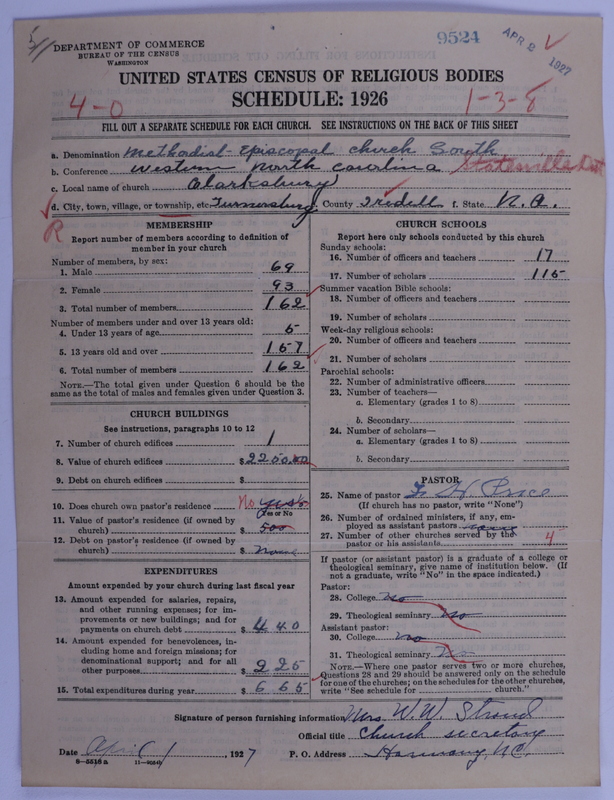 5//
DEPARTMENT OF COMMERCE
BUREAU OF THE CENSUS
WASHINGTON
9524
APR 2 1927
UNITED STATES CENSUS OF RELIGIOUS BODIES
SCHEDULE: 1926
4-0
1-3-8
FILL OUT A SEPARATE SCHEDULE FOR EACH CHURCH. SEE INSTRUCTIONS ON THE BACK OF THIS SHEET
a. Denomination Methodist Episcopal church South
b. Conference Western North Carolina Statesville Dist
c. Local name of church Clarksbury
d. City, town, village, or township, etc. Turnersburg County Iredell f. State N.C.
R
MEMBERSHIP
Report number of members according to definition of member in your church
Number of members, by sex:
1. Male 69
2. Female 93
3. Total number of members 162
Number of members under and over 13 years old:
4. Under 13 years of age 5
5. 13 years old and over 157
6. Total number of members 162
NOTE.—The total given under Question 6 should be the
same as the total of males and females given under Question 3.
CHURCH BUILDINGS
See instructions, paragraphs 10 to 12
7. Number of church edifices 1
8. Value of church edifices $2250.00
9. Debt on church edifices $
10. Does church own pastor's residence No yes
Yes or No
11. Value of pastor's residence (if owned by
church) $ 500
12. Debt on pastor's residence (if owned by
church) $ None
EXPENDITURES
Amount expended by your church during last fiscal year
13. Amount expended for salaries, repairs,
and other running expenses; for im-
provements or new buildings; and for
payments on church debt $ 440
14. Amount expended for benevolences, in-
cluding home and foreign missions; for
denominational support; and for all
other purposes $ 225
15. Total expenditures during year $ 665
CHURCH SCHOOLS
Report here only schools conducted by this church
Sunday schools:
16. Number of officers and teachers 17
17. Number of scholars 115
Summer vacation Bible schools:
18. Number of officers and teachers
19. Number of scholars
Week-day religious schools:
20. Number of officers and teachers
21. Number of scholars
Parochial schools:
22. Number of administrative officers
23. Number of teachers—
a. Elementary (grades 1 to 8)
b. Secondary
24. Number of scholars—
a. Elementary (grades 1 to 8)
b. Secondary
PASTOR
25. Name of pastor H Price
(If church has no pastor, write "None")
26. Number of ordained ministers, if any, em-
ployed as assistant pastors
27. Number of other churches served by the
pastor or his assistants 4
If pastor (or assistant pastor) is a graduate of a college or
theological seminary, give name of institution below. (If
not a graduate, write "No" in the space indicated.)
Pastor:
28. College No
29. Theological seminary No
Assistant pastor:
30. College No
31. Theological seminary No
NOTE.—Where one pastor serves two or more churches,
Questions 28 and 29 should be answered only on the schedule
for one of the churches; on the schedules for the other churches,
write "See schedule for church."
Signature of person furnishing information Mrs. W. W. Stroud
Official title Church secretary
Date April 1, 1927 P. O. Address Harmony, N.C.
8—5518a 11—9054b